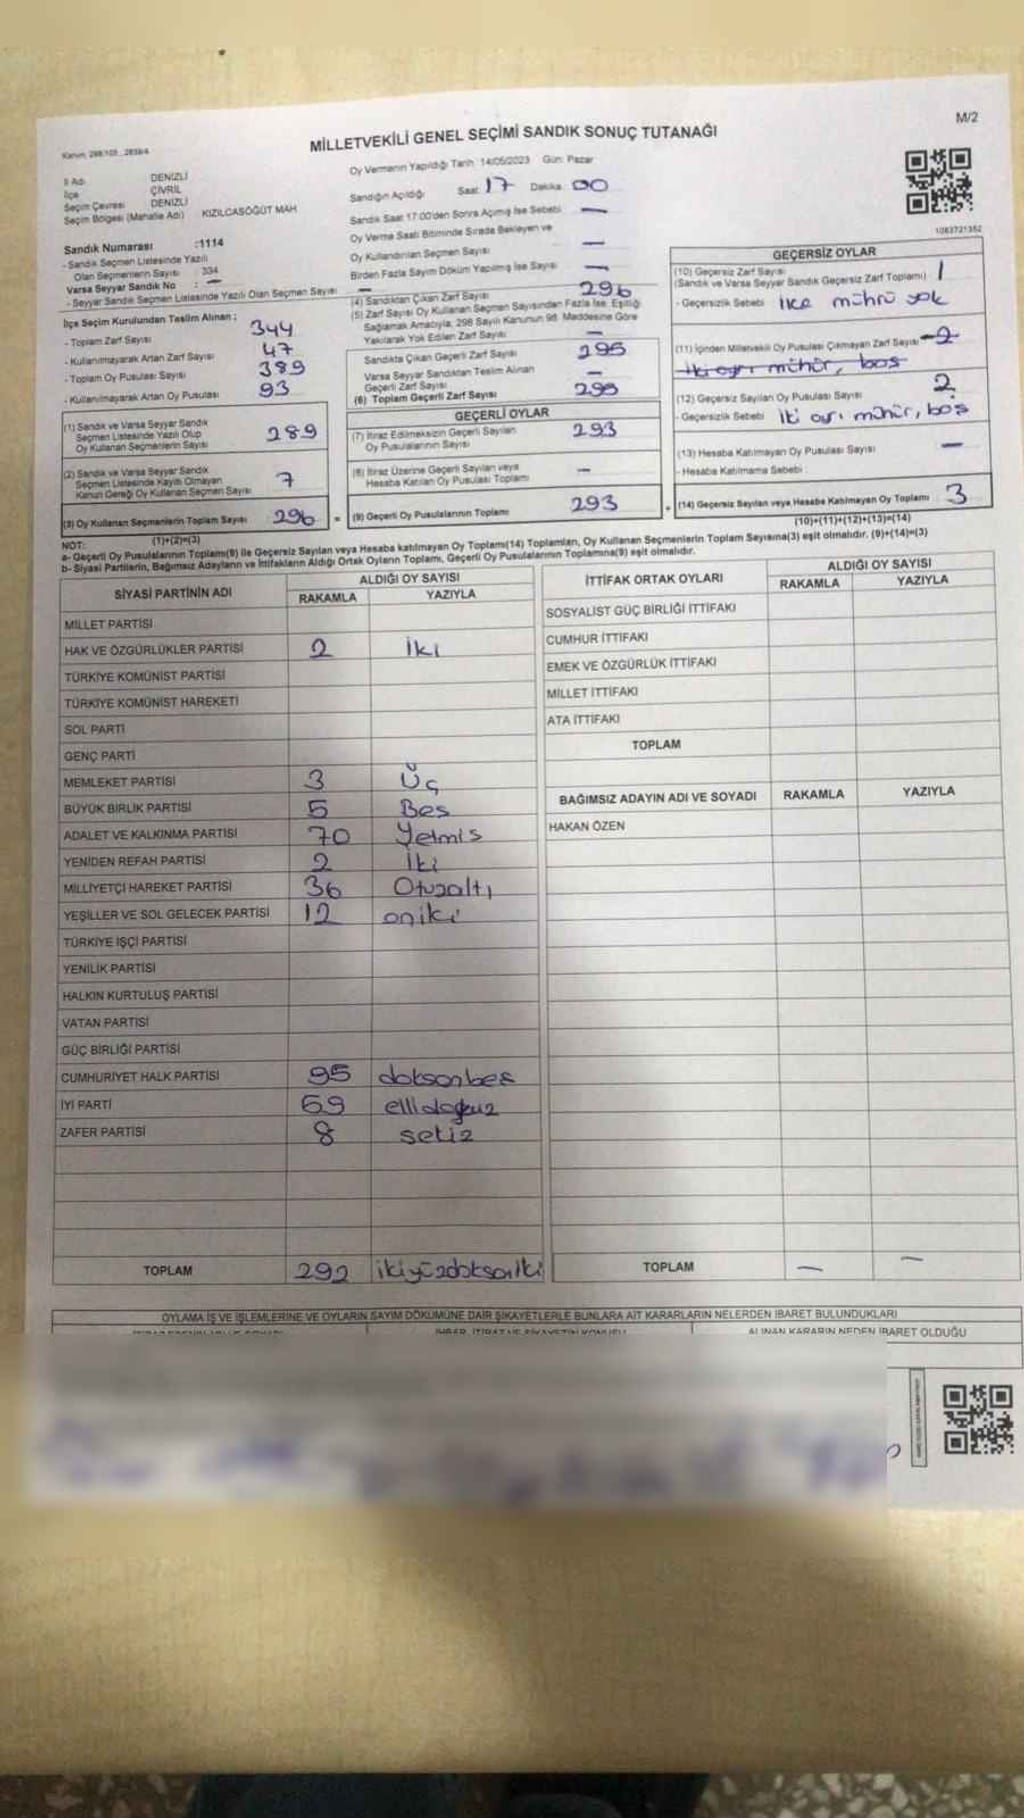 M/2
MİLLETVEKİLİ GENEL SEÇİMİ SANDIK SONUÇ TUTANAĞI
İl Adı DENİZLİ
İlçe ÇİVRİL
Seçim Çevresi DENİZLİ
Seçim Bölgesi (Mahalle Adı) KIZILCASÖĞÜT MAH
Sandık Numarası :1114
- Sandık Seçmen Listesinde Yazılı
Olan Seçmenlerin Sayısı : 334
Varsa Seyyar Sandık No : –
- Seyyar Sandık Seçmen Listesinde Yazılı Olan Seçmen Sayısı –
İlçe Seçim Kurulundan Teslim Alınan ;
- Toplam Zarf Sayısı 344
- Kullanılmayarak Artan Zarf Sayısı 47
- Toplam Oy Pusulası Sayısı 389
- Kullanılmayarak Artan Oy Pusulası 93
(1) Sandık ve Varsa Seyyar Sandık
Seçmen Listesinde Yazılı Olup
Oy Kullanan Seçmenlerin Sayısı 289
(2) Sandık ve Varsa Seyyar Sandık
Seçmen Listesinde Kaydı Olmayan
Kanun Gereği Oy Kullanan Seçmen Sayısı 7
(3) Oy Kullanan Seçmenlerin Toplam Sayısı 296
(1)+(2)=(3)
Oy Vermenin Yapıldığı Tarih 14/05/2023 Gün: Pazar
Sandığın Açıldığı Saat 17 Dakika 00
Sandık Saat 17:00'den Sonra Açılmış İse Sebebi –
Oy Verme Saati Bitiminde Sırada Bekleyen ve
Oy Kullandırılan Seçmen Sayısı –
Birden Fazla Sayım Döküm Yapılmış İse Sayısı –
(4) Sandıktan Çıkan Zarf Sayısı 296
(5) Zarf Sayısı Oy Kullanan Seçmen Sayısından Fazla İse, Eşitliği
Sağlamak Amacıyla, 298 Sayılı Kanunun 98. Maddesine Göre
Yakılarak Yok Edilen Zarf Sayısı –
Sandıkta Çıkan Geçerli Zarf Sayısı 295
Varsa Seyyar Sandıktan Teslim Alınan
Geçerli Zarf Sayısı –
(6) Toplam Geçerli Zarf Sayısı 295
GEÇERLİ OYLAR
(7) İtiraz Edilmeksizin Geçerli Sayılan
Oy Pusulalarının Sayısı 293
(8) İtiraz Üzerine Geçerli Sayılan veya
Hesaba Katılan Oy Pusulası Toplamı –
= (9) Geçerli Oy Pusulalarının Toplamı 293
1083721352
GEÇERSİZ OYLAR
(10) Geçersiz Zarf Sayısı
(Sandık ve Varsa Seyyar Sandık Geçersiz Zarf Toplamı) 1
- Geçersizlik Sebebi ilçe mührü yok
(11) İçinden Milletvekili Oy Pusulası Çıkmayan Zarf Sayısı 2
iki ayrı mühür, boş
(12) Geçersiz Sayılan Oy Pusulası Sayısı 2
- Geçersizlik Sebebi iki ayrı mühür, boş
(13) Hesaba Katılmayan Oy Pusulası Sayısı –
- Hesaba Katılmama Sebebi :
+ (14) Geçersiz Sayılan veya Hesaba Katılmayan Oy Toplamı 3
(10)+(11)+(12)+(13)=(14)
NOT:
a- Geçerli Oy Pusulalarının Toplamı(9) ile Geçersiz Sayılan veya Hesaba katılmayan Oy Toplamı(14) Toplamları, Oy Kullanan Seçmenlerin Toplam Sayısına(3) eşit olmalıdır. (9)+(14)=(3)
b- Siyasi Partilerin, Bağımsız Adayların ve İttifakların Aldığı Ortak Oyların Toplamı, Geçerli Oy Pusulalarının Toplamına(9) eşit olmalıdır.
SİYASİ PARTİNİN ADI ALDIĞI OY SAYISI
RAKAMLA YAZIYLA
MİLLET PARTİSİ
HAK VE ÖZGÜRLÜKLER PARTİSİ 2 İki
TÜRKİYE KOMÜNİST PARTİSİ
TÜRKİYE KOMÜNİST HAREKETİ
SOL PARTİ
GENÇ PARTİ
MEMLEKET PARTİSİ 3 Üç
BÜYÜK BİRLİK PARTİSİ 5 Bes
ADALET VE KALKINMA PARTİSİ 70 Yetmis
YENİDEN REFAH PARTİSİ 2 İki
MİLLİYETÇİ HAREKET PARTİSİ 36 Otuzaltı
YEŞİLLER VE SOL GELECEK PARTİSİ 12 oniki
TÜRKİYE İŞÇİ PARTİSİ
YENİLİK PARTİSİ
HALKIN KURTULUŞ PARTİSİ
VATAN PARTİSİ
GÜÇ BİRLİĞİ PARTİSİ
CUMHURİYET HALK PARTİSİ 95 doksanbes
İYİ PARTİ 59 ellidoğuz
ZAFER PARTİSİ 8 sekiz
TOPLAM 292 ikiyüzdoksaniki
İTTİFAK ORTAK OYLARI ALDIĞI OY SAYISI
RAKAMLA YAZIYLA
SOSYALİST GÜÇ BİRLİĞİ İTTİFAKI
CUMHUR İTTİFAKI
EMEK VE ÖZGÜRLÜK İTTİFAKI
MİLLET İTTİFAKI
ATA İTTİFAKI
TOPLAM
BAĞIMSIZ ADAYIN ADI VE SOYADI RAKAMLA YAZIYLA
HAKAN ÖZEN
TOPLAM – –
OYLAMA İŞ VE İŞLEMLERİNE VE OYLARIN SAYIM DÖKÜMÜNE DAİR ŞİKAYETLERLE BUNLARA AİT KARARLARIN NELERDEN İBARET BULUNDUKLARI
ALINAN KARARIN NEDEN İBARET OLDUĞU